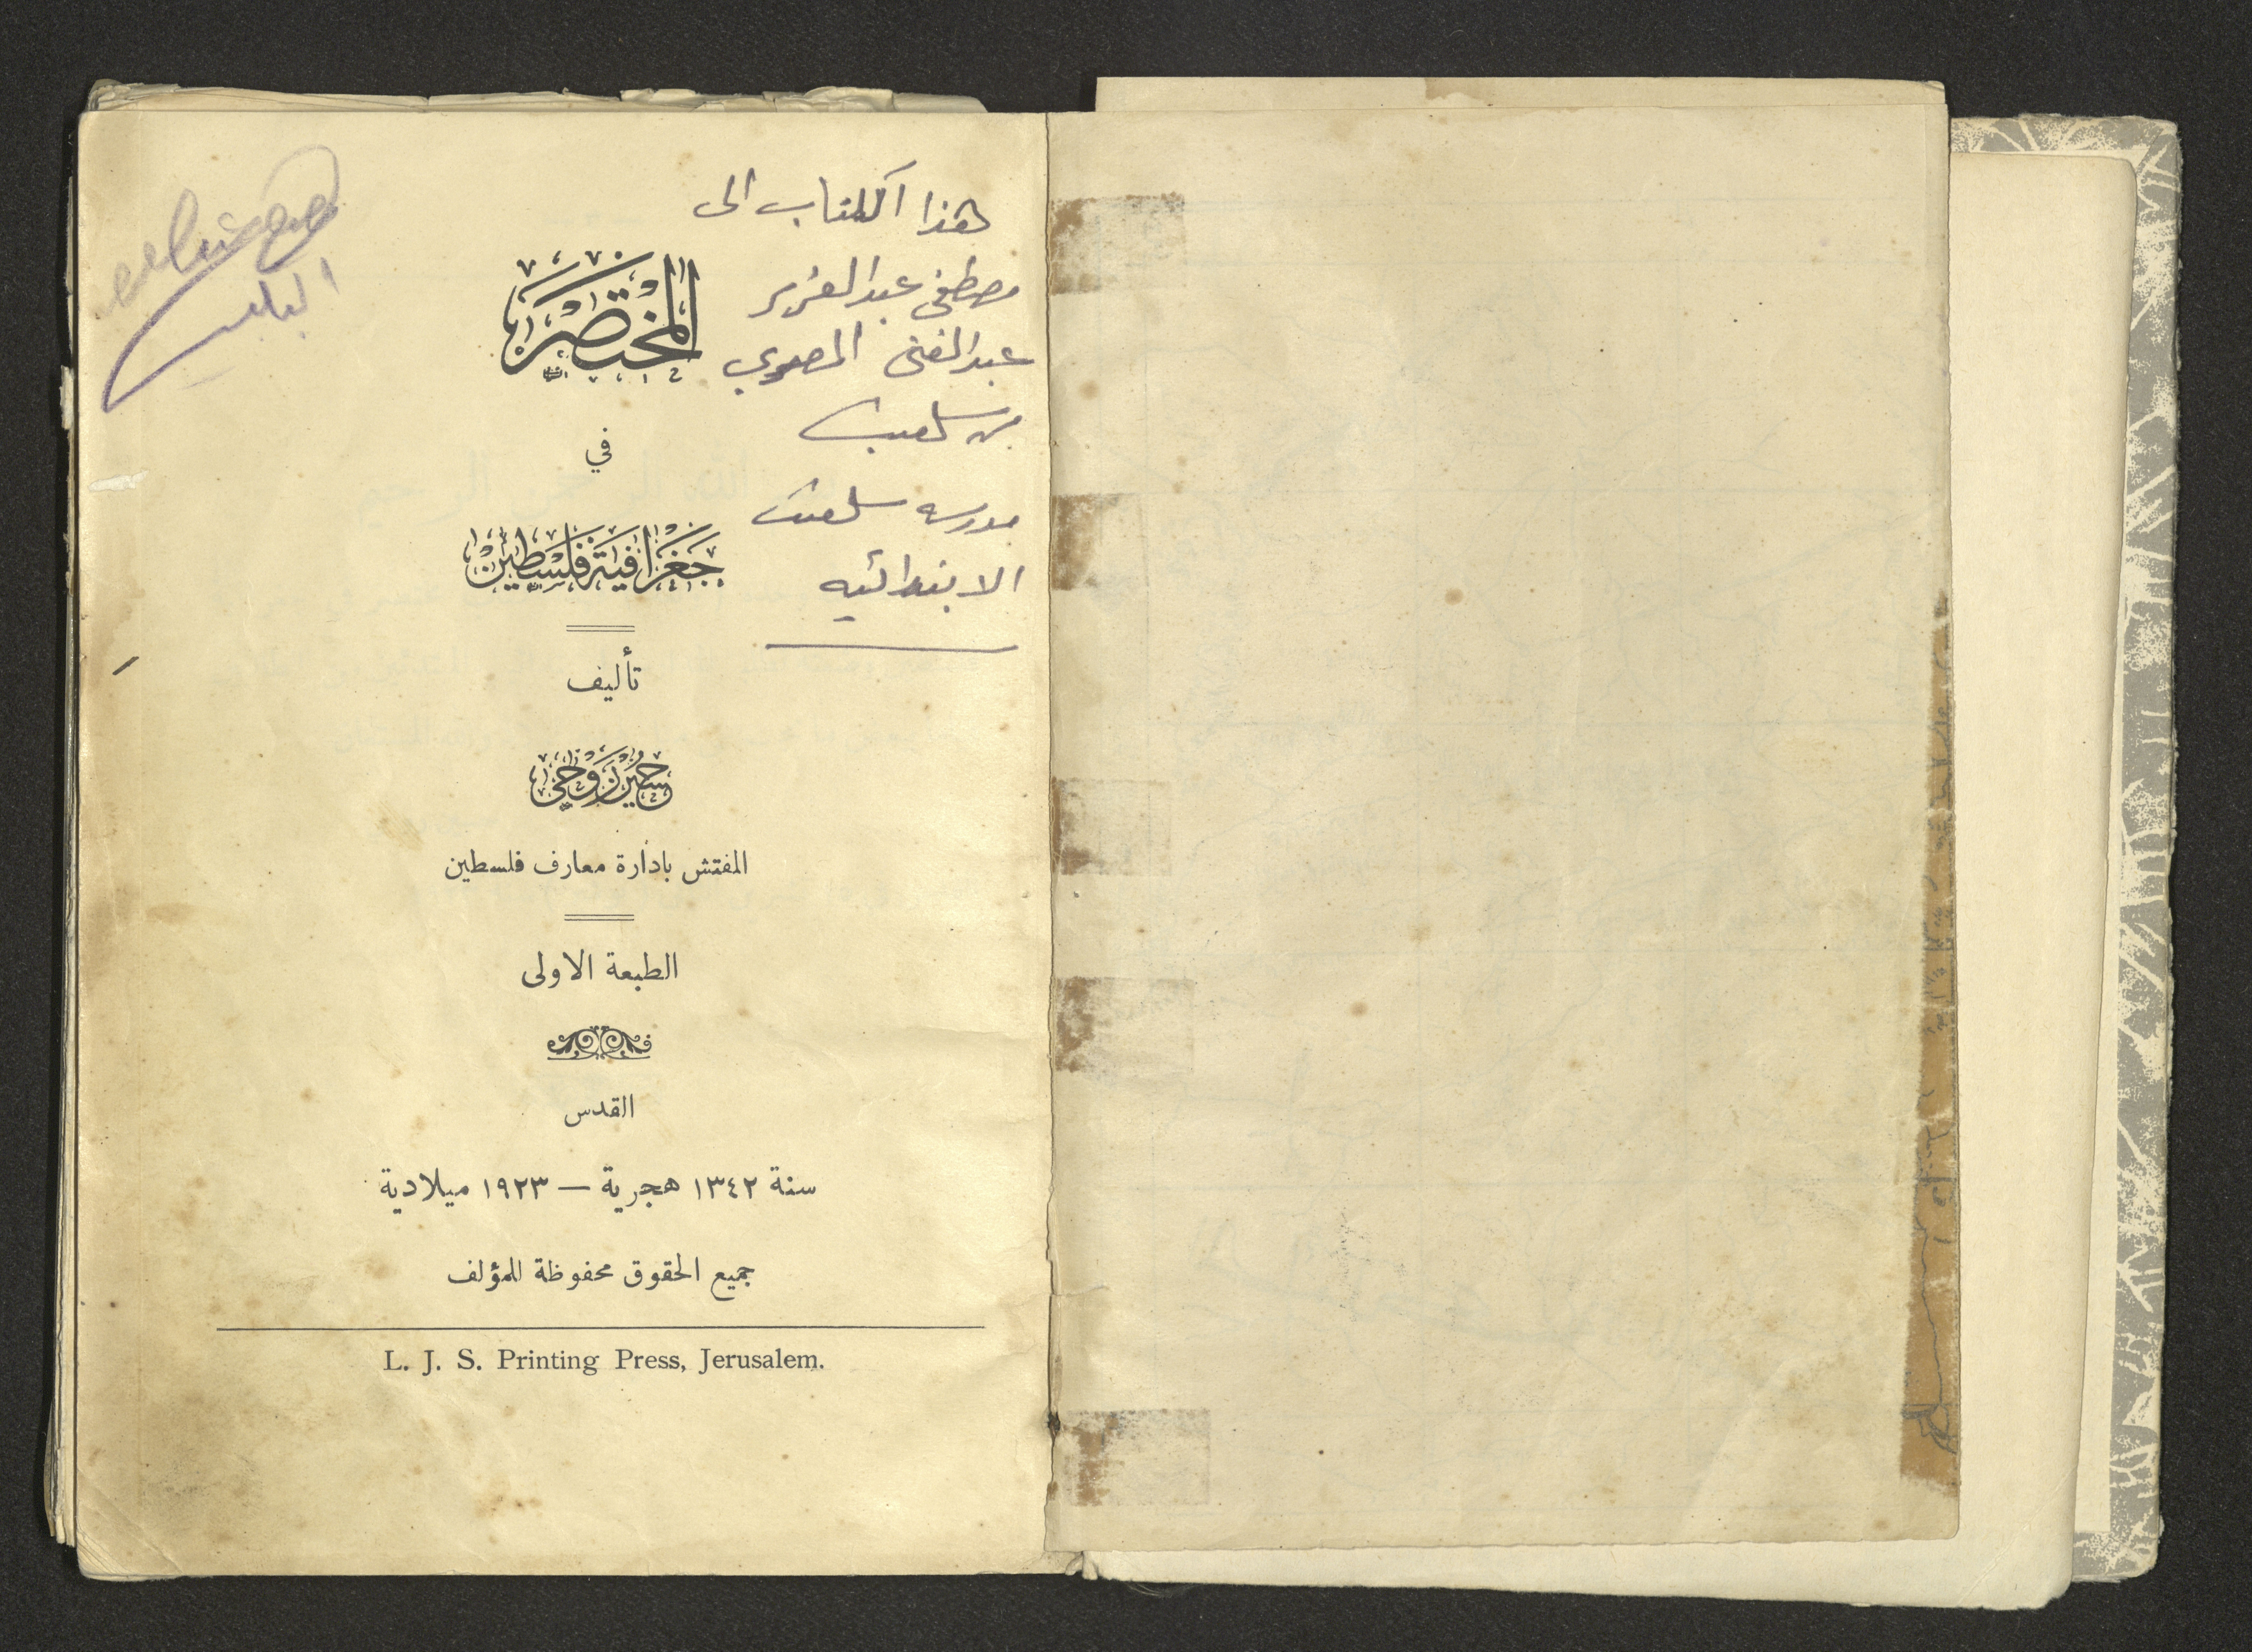 هذا الكتاب الى
مصطفى عبدالعزيز
عبدالغني المصري
من سلفيت
مدرسه سلفيت
الابتدائيه
المختصر
في
جغرافية فلسطين
تأليف
حسين روحي
المفتش بادارة معارف فلسطين
الطبعة الاولى
القدس
سنة ١٣٤٢ هجرية — ١٩٢٣ ميلادية
جميع الحقوق محفوظة للمؤلف
L. J. S. Printing Press, Jerusalem.